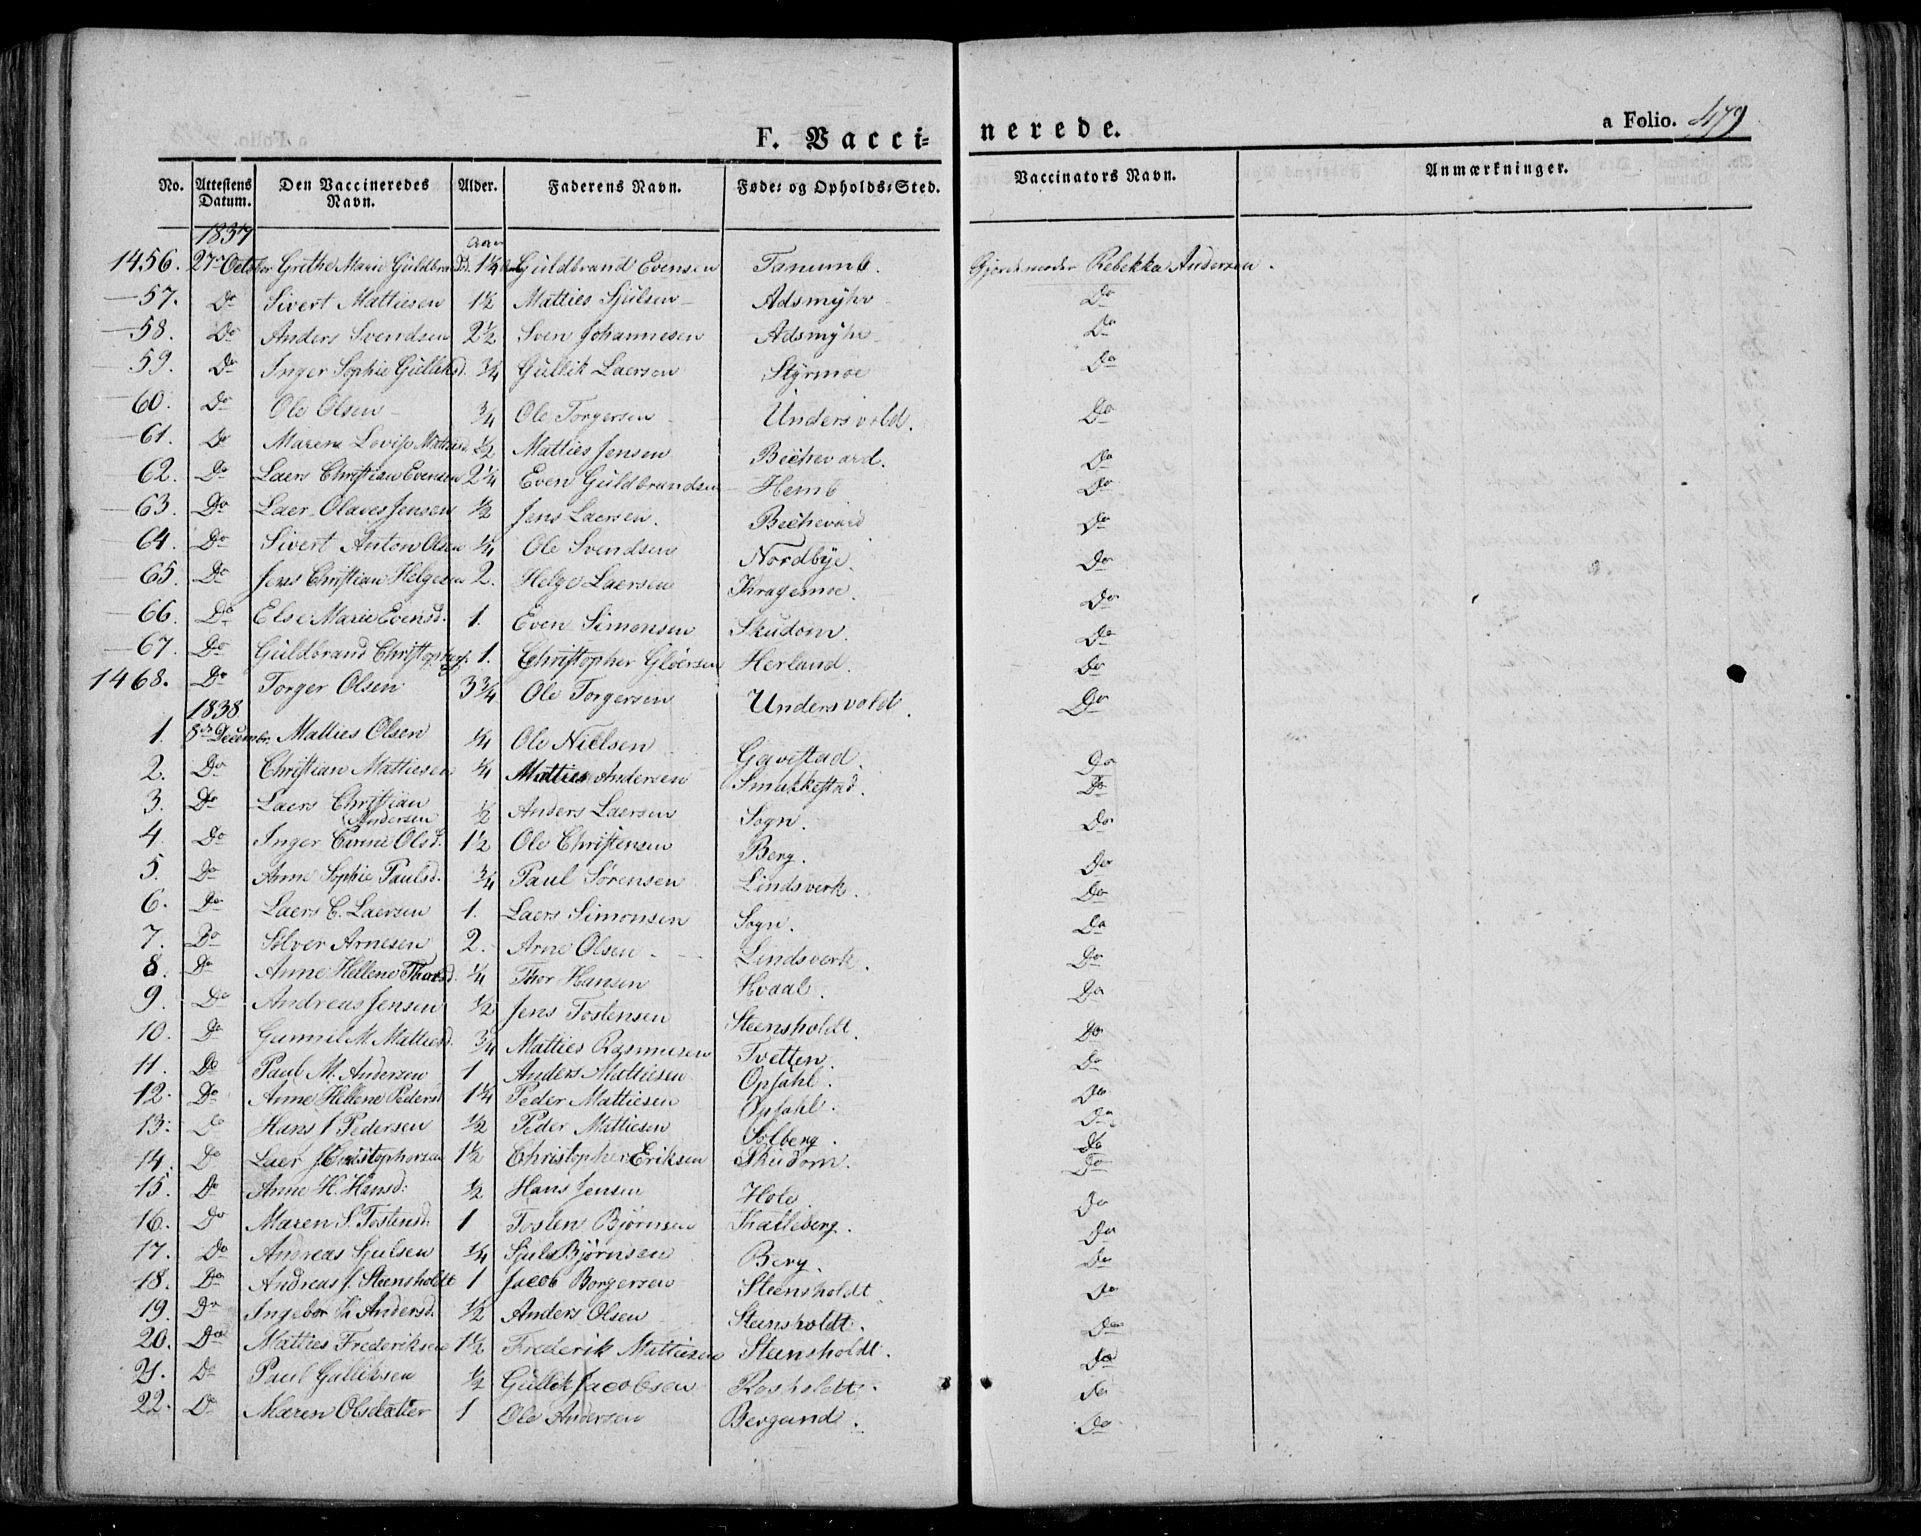 F. Vaccinerede.
a Folio. 479
No. Attestens Datum. Den Vaccineredes Navn. Alder. Faderens Navn. Føde- og Opholds-Sted. Vaccinators Navn. Anmærkninger.
1837
1456. 27de October Grethe Marie Guldbrandsd. 1¼ Guldbrand Evensen Tanumb. Gjordemoder Rebekka Andersen.
57. Do Sivert Mattiesen 1½ Matties Sjulsen Adsmyhr Do
58. Do Anders Svendsen 2½ Sven Johannesen Adsmyhr Do
59. Do Inger Sophie Gulliksd. ¾ Gullik Laersen Styrmoe Do
60. Do Ole Olsen ¾ Ole Torgersen Undersvold. Do
61. Do Maren Lovise ½ Matties Jensen Bechevard. Do
62. Do Laers Christian Evensen 2¼ Even Guldbrandsen Hemb Do
63. Do Laer Olaves Jensen ½ Jens Laersen. Bechevard Do
64. Do Sivert Anton Olsen ¼ Ole Svendsen Nordbye. Do
65. Do Jens Christian Helgesen 2. Helge Laersen Kragemoe. Do
66. Do Else Marie Evensd. 1. Even Simonsen Skudom. Do
67. Do Guldbrand Christophers. 1. Christopher Gloersen Herland. Do
1468. Do Torger Olsen 3¾ Ole Torgersen Undersvold. Do
1838
1. 8de Decembr. Matties Olsen ¼ Ole Nielsen Gavistad. Do
2. Do Christian Mattiesen ¼ Matties Andersen Smukkestad. Do
3. Do Laers Christian Andersen ½ Anders Laersen Sogn. Do
4. Do Inger Carine Olsd. 1½ Ole Christensen Berg. Do
5. Do Anne Sophie Paulsd. ¾ Paul Sørensen Lindsverk. Do
6. Do Laers C. Laersen 1. Laers Simonsen Sogn. Do
7. Do Sølver Arnesen 2. Arne Olsen Lindsverk. Do
8. Do Anne Hellene Thorsd. ¼ Thor Hansen Hvaal. Do
9. Do Andreas Jensen ½ Jens Tostensen Steensholdt Do
10. Do Gunnil M. Mattiesd. ¾ Matties Rasmusen Tvetten. Do
11. Do Paul M. Andersen 1 Anders Mattiesen Opsahl. Do
12. Do Anne Hellene Pedersd. 1¼ Peder Mattiesen Opsahl. Do
13. Do Hans J Pedersen ½ Peder Mattiesen Solberg. Do
14. Do Laer J Christophersen 1½ Christopher Eriksen Skudom. Do
15. Do Anne H. Hansd. ½ Hans Jensen Hole Do
16. Do Maren S. Tostensd. 1 Tosten Bjørnsen Kalleberg. Do
17. Do Andreas Sjulsen ¼ Sjuls Bjørnsen Berg. Do
18. Do Andreas J. Steensholdt 1 Jacob Borgersen Steensholdt. Do
19. Do Ingebor K Andersd. ½ Anders Olsen Steensholdt. Do
20. Do Matties Frederiksen 1½ Frederik Mattiesen Steensholdt. Do
21. Do Paul Gulliksen ½ Gullik Jacobsen Rosholdt. Do
22. Do Maren Olsdatter 1 Ole Andersen Bergand. Do